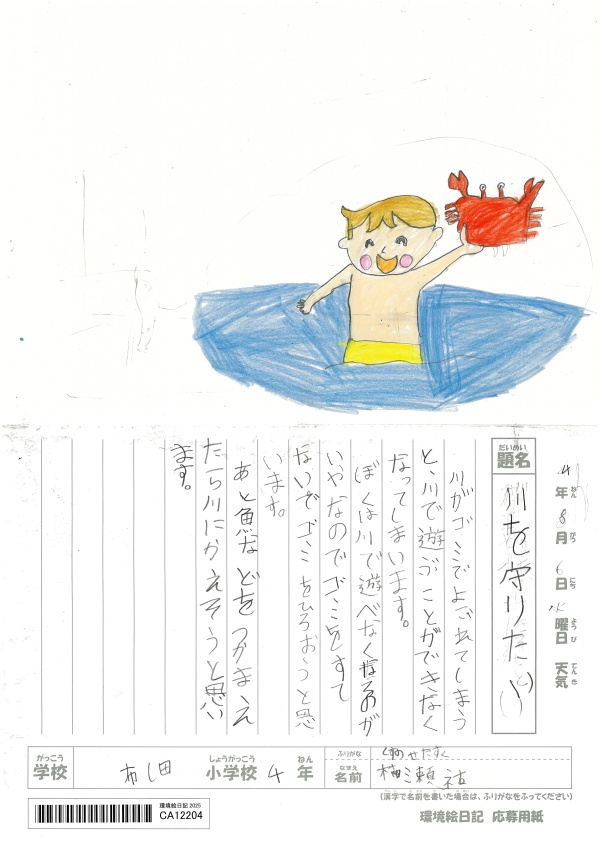 4年ねん8月がつ6日にち水曜日ようび 天気てんき
だいめい
題名
川を守りたい
川がゴミでよごれてしまう
と、川で遊ぶことができなく
なってしまいます。
ぼくは川で遊べなくなるのが
いやなのでゴミをすて
ないでゴミをひろおうと思
います。
あと魚などをつかまえ
たら川にかえそうと思い
ます。
がっこう
学校
しょうがっこう
小学校 4 ねん
年
ふりがな
せたすく
なまえ
名前
瀬 祐
(漢字で名前を書いた場合は、ふりがなをふってください)
環境絵日記 2025
CA12204
環境絵日記 応募用紙